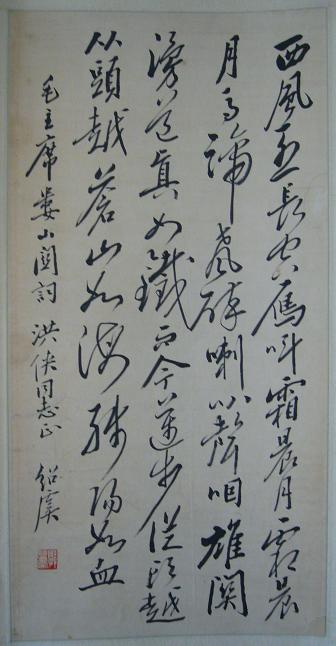 西風烈長空雁叫霜晨月霜晨
月馬蹄聲碎喇叭聲咽雄關
漫道真如鐵而今邁步從頭越
从頭越蒼山如海殘陽如血
毛主席婁山関詞 洪俠同志正 紹虞